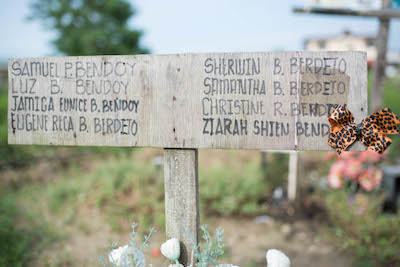 SAMUEL P. BENDOY
LUZ B. BENDOY
JAMIGA EUNICE B. BENDOY
EUGENE RECA B. BERDEJO
SHERWIN B. BERDEJO
SAMANTHA B. BERDEJO
CHRISTINE R. BERDEJO
ZIARAH SHIEN BEND